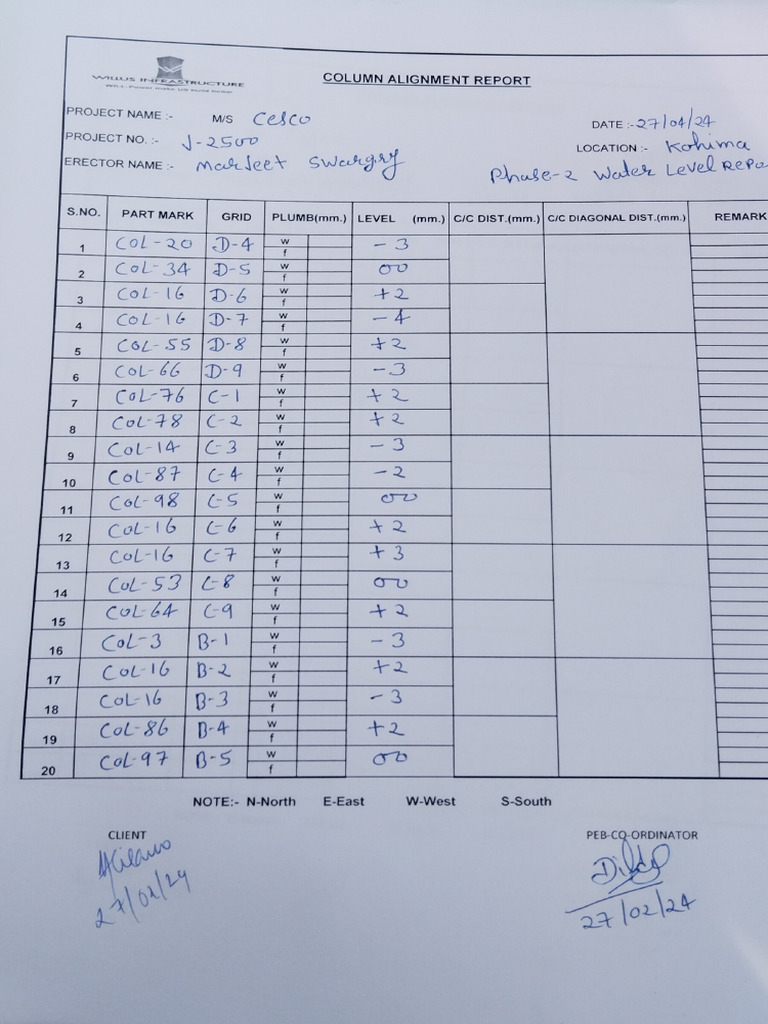 WILLUS INFRASTRUCTURE
COLUMN ALIGNMENT REPORT
PROJECT NAME :- M/S Cesco
DATE :- 27/04/24
PROJECT NO. :- J-2500
LOCATION :- Kohima
ERECTOR NAME :- Marjeet Swargiry
Phase-2 Water Level Repo
S.NO. PART MARK GRID PLUMB(mm.) LEVEL (mm.) C/C DIST.(mm.) C/C DIAGONAL DIST.(mm.) REMARK
1 COL-20 D-4 w f -3
2 COL-34 D-5 w f 00
3 COL-16 D-6 w f +2
4 COL-16 D-7 w f -4
5 COL-55 D-8 w f +2
6 COL-66 D-9 w f -3
7 COL-76 C-1 w f +2
8 COL-78 C-2 w f +2
9 COL-14 C-3 w f -3
10 COL-87 C-4 w f -2
11 COL-98 C-5 w f 00
12 COL-16 C-6 w f +2
13 COL-16 C-7 w f +3
14 COL-53 C-8 w f 00
15 COL-64 C-9 w f +2
16 COL-3 B-1 w f -3
17 COL-16 B-2 w f +2
18 COL-16 B-3 w f -3
19 COL-86 B-4 w f +2
20 COL-97 B-5 w f 00
NOTE:- N-North E-East W-West S-South
CLIENT
PEB-CO-ORDINATOR
27/02/24
27/02/24